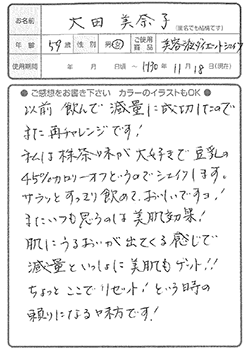 お名前 大田 美奈子 (匿名でも結構です)
年齢 59歳 性別 男・女 ご使用商品 美容液ダイエットシェイク
使用期間 年 月 日頃 〜 H30年 11月 18日(現在)
● ご感想をお書き下さい カラーのイラストもOK ●
以前 飲んで 減量に成功したので
また再チャレンジです!
私は抹茶ツネが大好きで 豆乳の
45%カロリーオフというのでシェイクします。
サラッとすっきり飲めて、おいしいですヨ!
またいつも思うのは美肌効果!
肌にうるおいが出てくる感じで
減量といっしょに美肌もゲット!!
ちょっとここでリセット!という時の
頼りになる味方です!